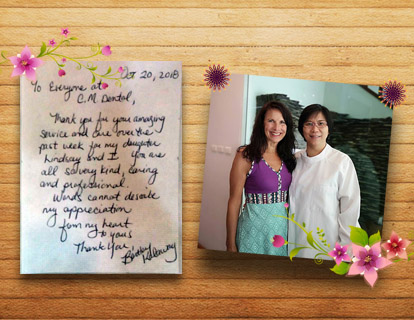 Oct 20, 2018
To Everyone at
C.M Dental,
Thank you for your amazing
service and care over the
past week for my daughter
Lindsay and I. You are
all so very kind, caring
and professional.
Words cannot describe
my appreciation
from my heart
to yours
Thank You